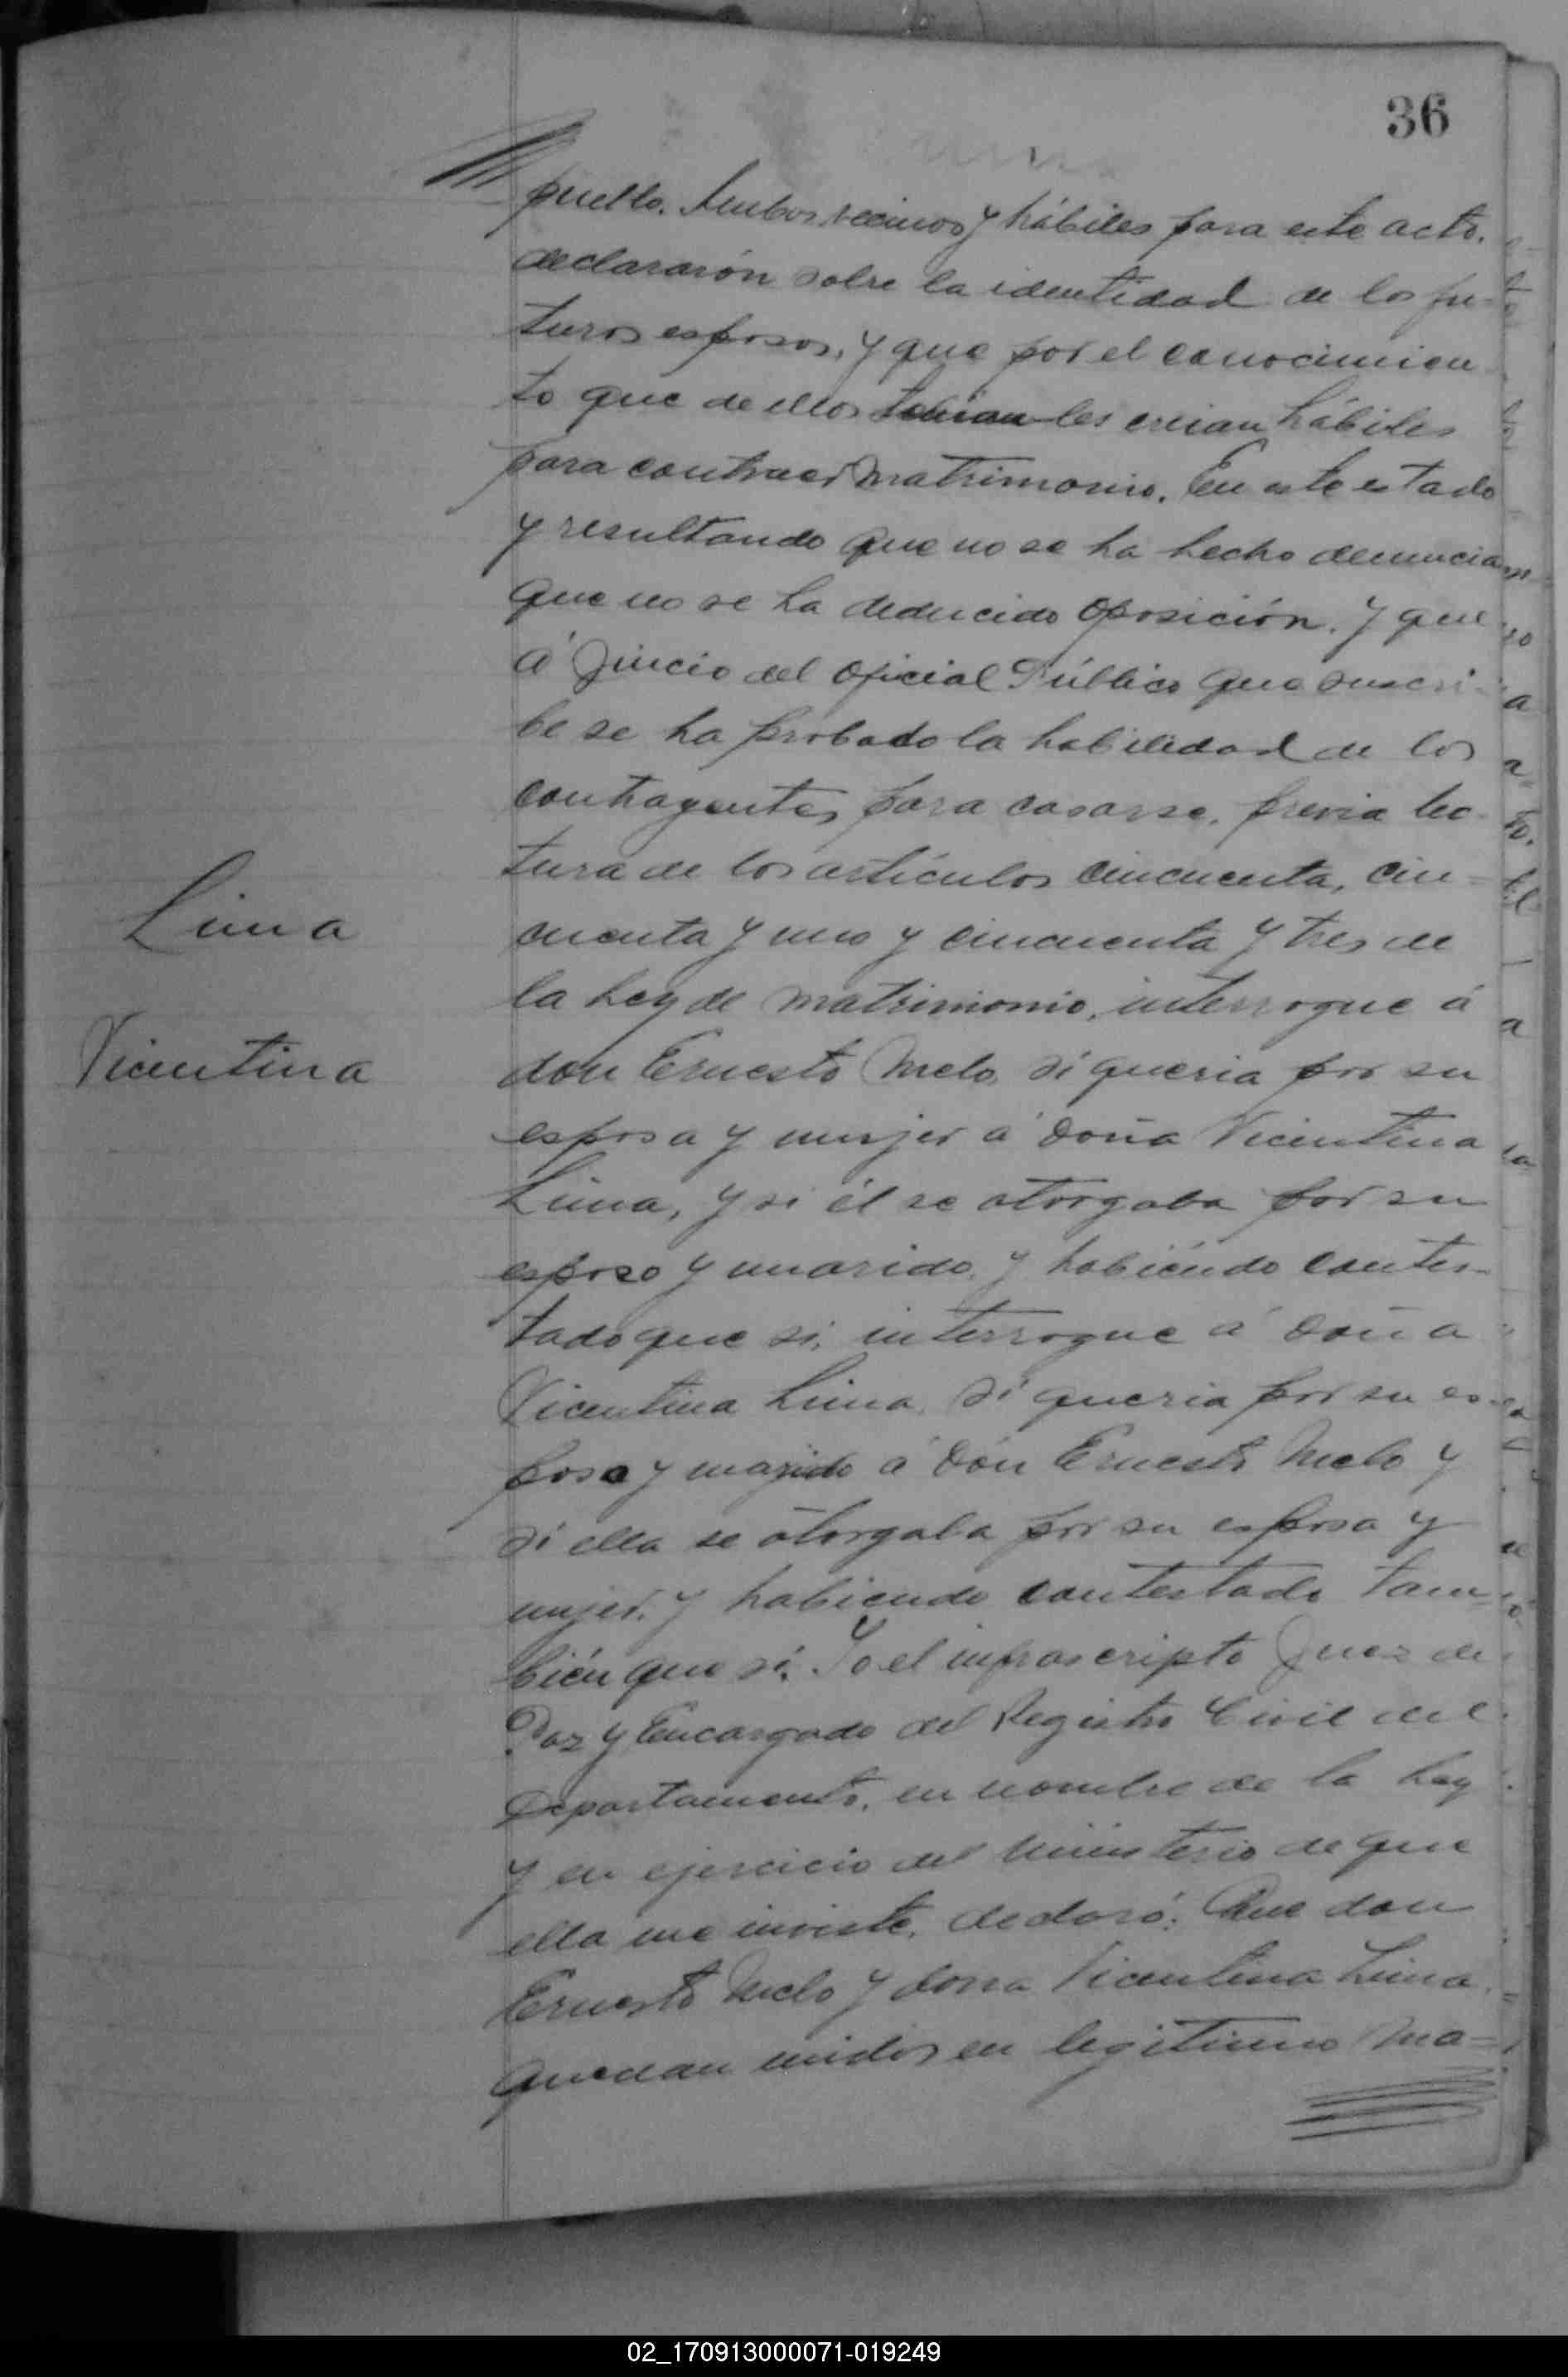 36
pueblo. Ambos vecinos y hábiles para este acto.
declararón sobre la identidad de los fu-
turos esposos, y que por el conocimien
to que de ellos tenian les creian hábiles
para contraer matrimonio. En este estado
y resultando que no se ha hecho denuncia
que no se ha deducido oposición. y que
á juicio del oficial Público que suscri-
be se ha probado la habilidad de los
contrayentes para casarse, previa lec-
tura de los artículos cincuenta, cin-
cuenta y uno y cincuenta y tres de
la Ley de matrimonio, interrogue á
don Ernesto Melo, si queria por su
esposa y mujer á doña Vicentina
Lima, y si él se otorgaba por su
esposo y marido, y habiéndo contes-
tado que si, interrogue á doña
Vicentina Lima, si queria por su es-
poso y marido á don Ernesto Melo y
si ella se otorgaba por su esposa y
mujer, y habiendo contestado tam-
bién que sí. Yo el infrascripto Juez de
Paz y Encargado del Registro Civil del
Departamento, en nombre de la Ley
y en ejercicio del Ministerio de que
ella me inviste, declaró: Que don
Ernesto Melo y dona Vicentina Lima,
quedan unidos en legitimo ma=
Lima
Vicentina
02_170913000071-019249